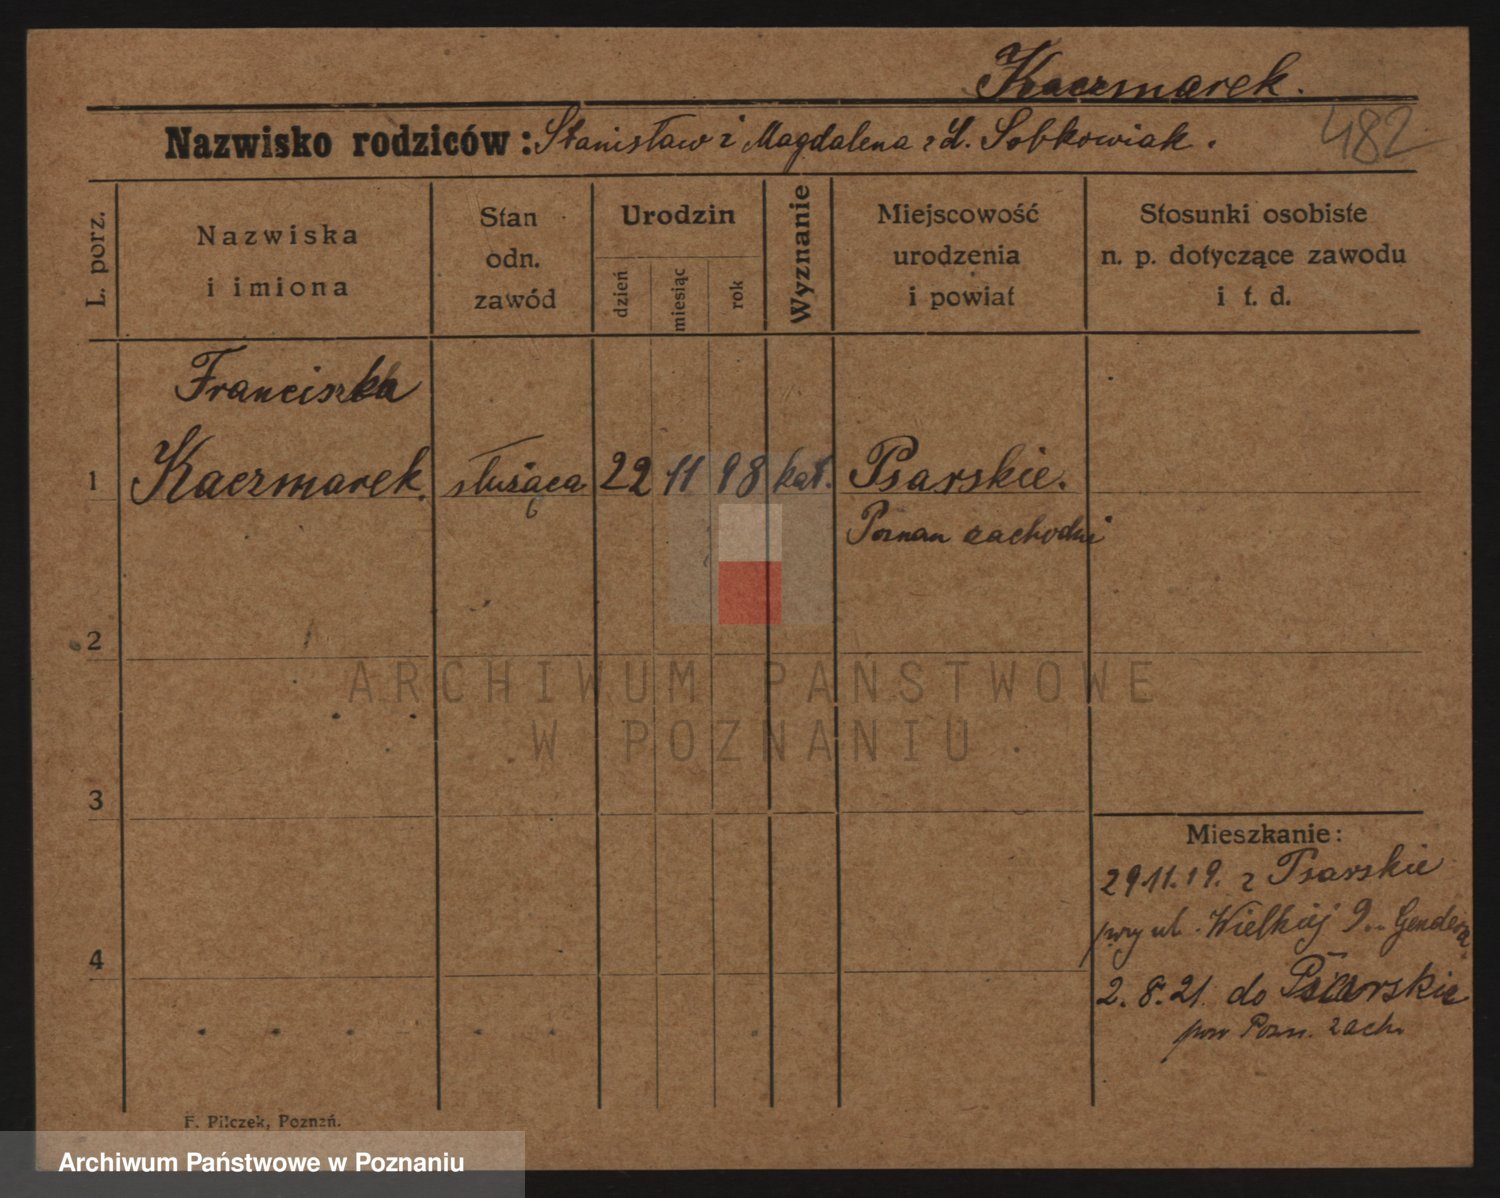 Kaczmarek.
482
Nazwisko rodziców: Stanisław i Magdalena z d. Sobkowiak.
L. porz.
Nazwiska
i imiona
Stan
odn.
zawód
Urodzin
dzień
miesiąc
rok
Wyznanie
Miejscowość
urodzenia
i powiat
Stosunki osobiste
n. p. dotyczące zawodu
i t. d.
Franciszka
1 Kaczmarek. służąca 22 11 98 kat. Psarskie.
Poznan zachodni
2
ARCHIWUM PAŃSTWOWE
W POZNANIU
3
Mieszkanie:
29 11. 19. z Psarskie
przy ul. Wielkiej 9
4
2. 8. 21. do Psarskie
pow Pozn. zach.
F. Pilczek, Poznań.
Archiwum Państwowe w Poznaniu